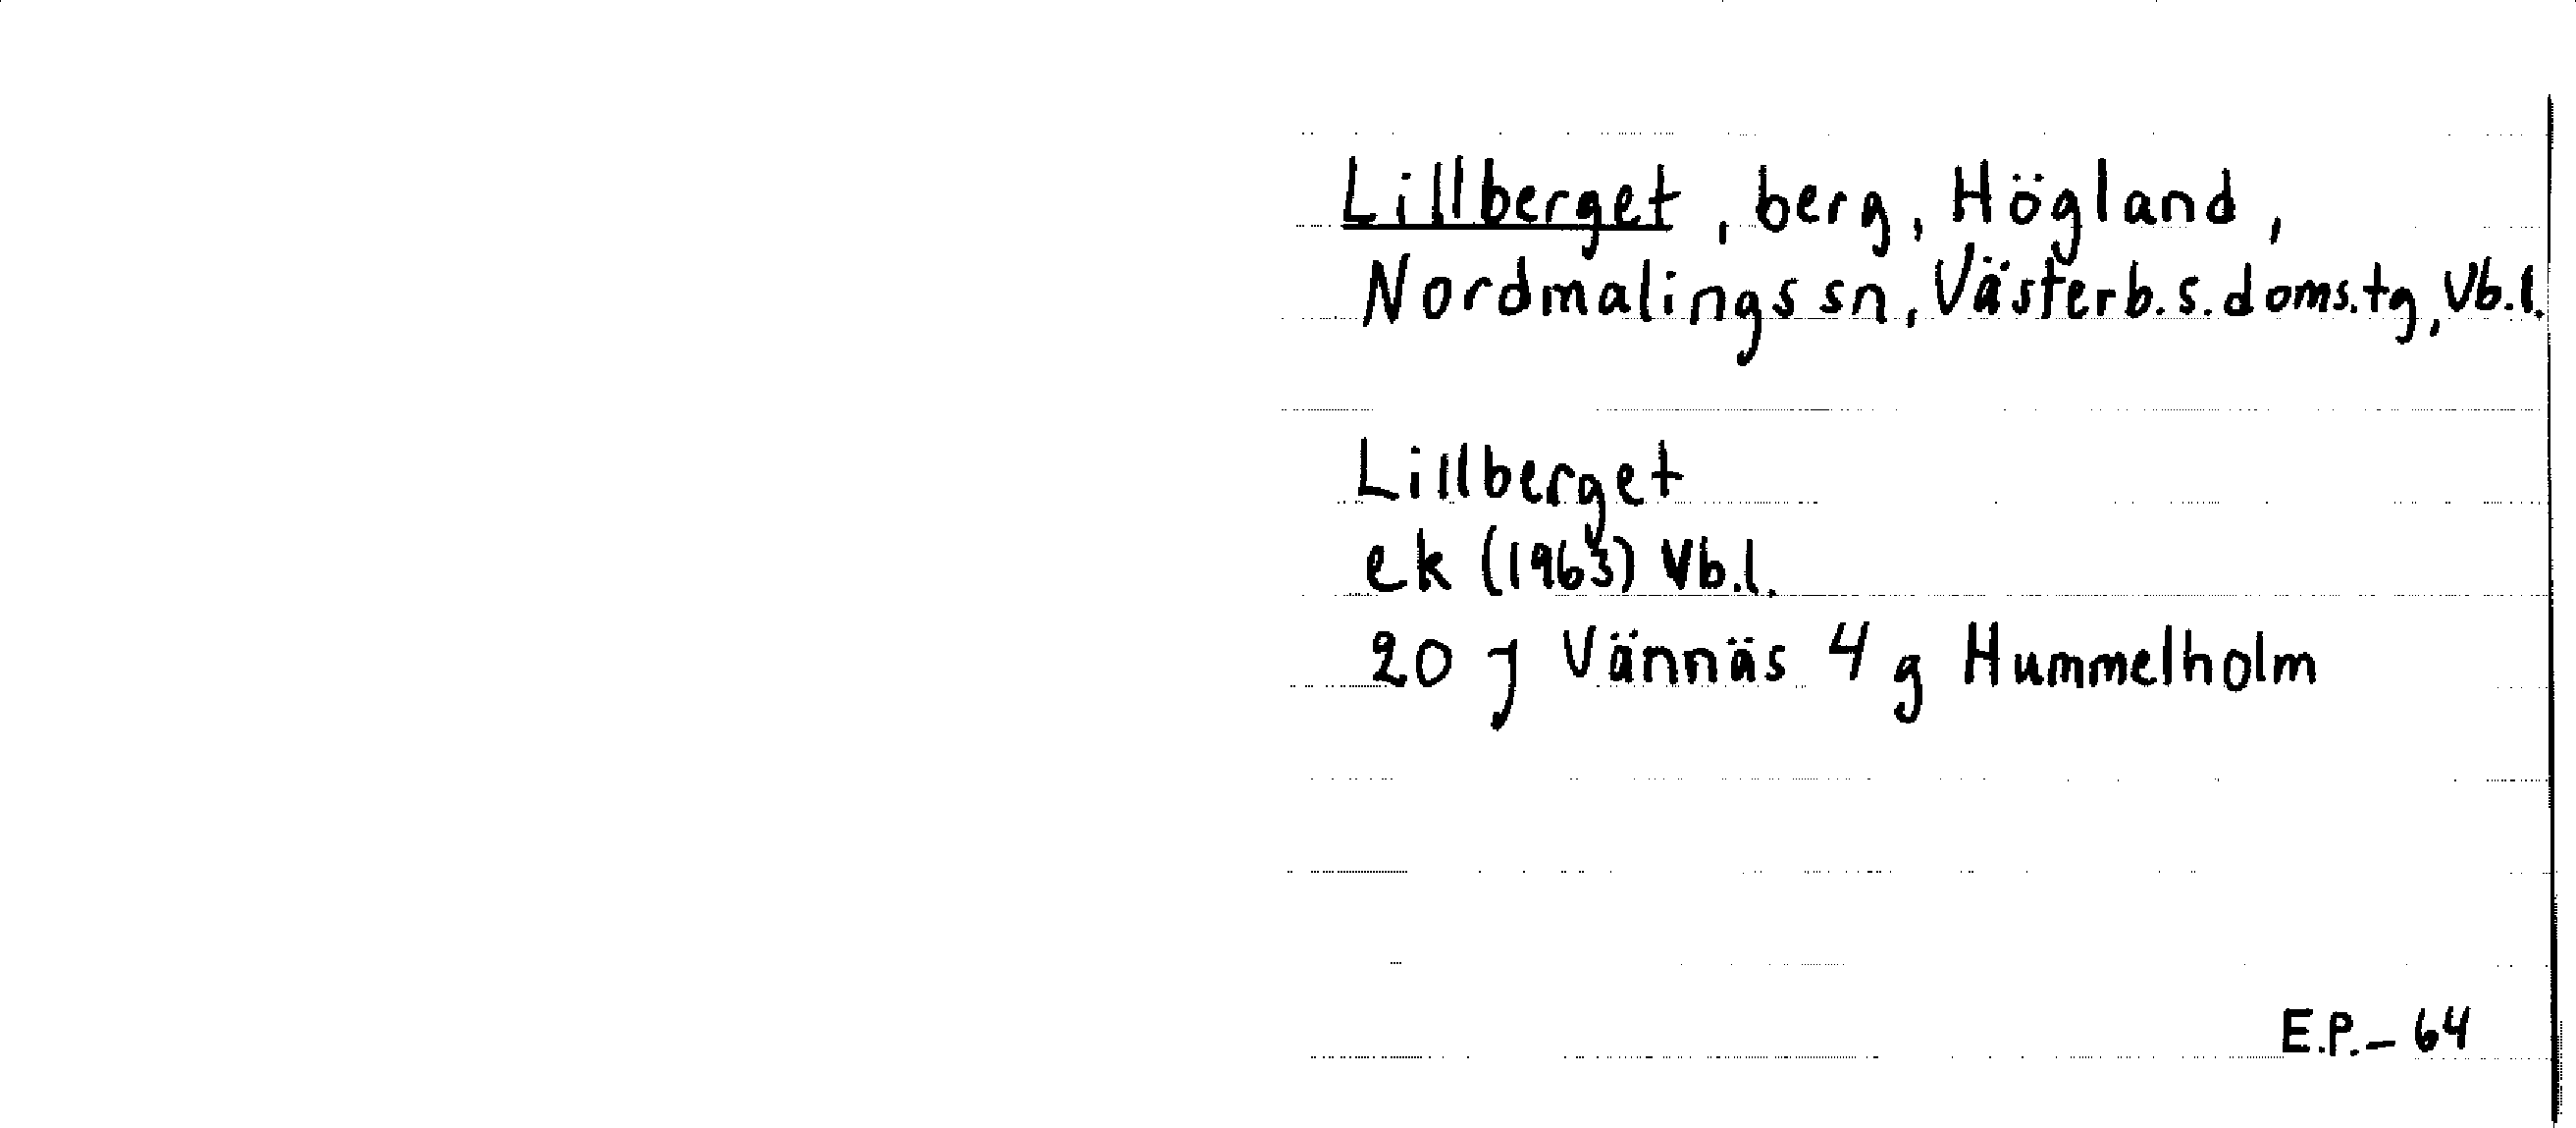 Lillberget, berg, Högland,
Nordmalings sn, Västerb. s. doms. tg, Vb. l.
Lillberget
ek (1963) Vb. l.
20 J Vännäs 4 g Hummelholm
E.P. – 64